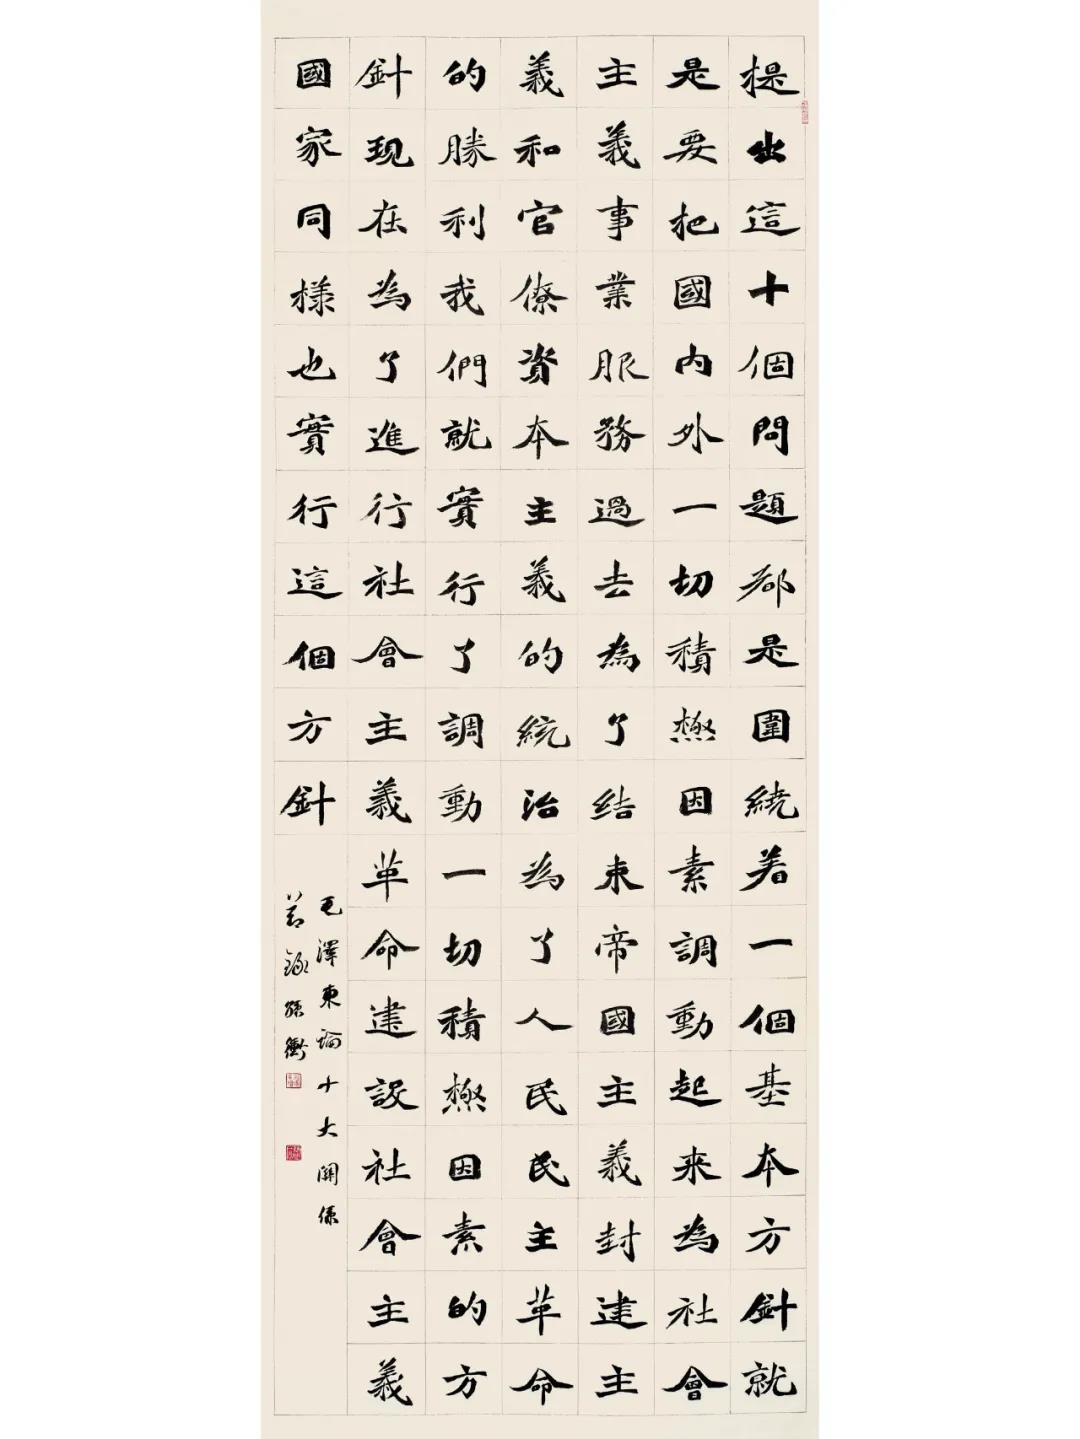 提出這十個問題都是圍繞着一個基本方針就
是要把國內外一切積極因素調動起来為社會
主義事業服務過去為了结束帝國主義封建主
義和官僚資本主義的統治為了人民民主革命
的勝利我們就實行了調動一切積極因素的方
針現在為了進行社會主義革命建設社會主義
國家同樣也實行這個方針
毛澤東論十大關係
節錄 衛